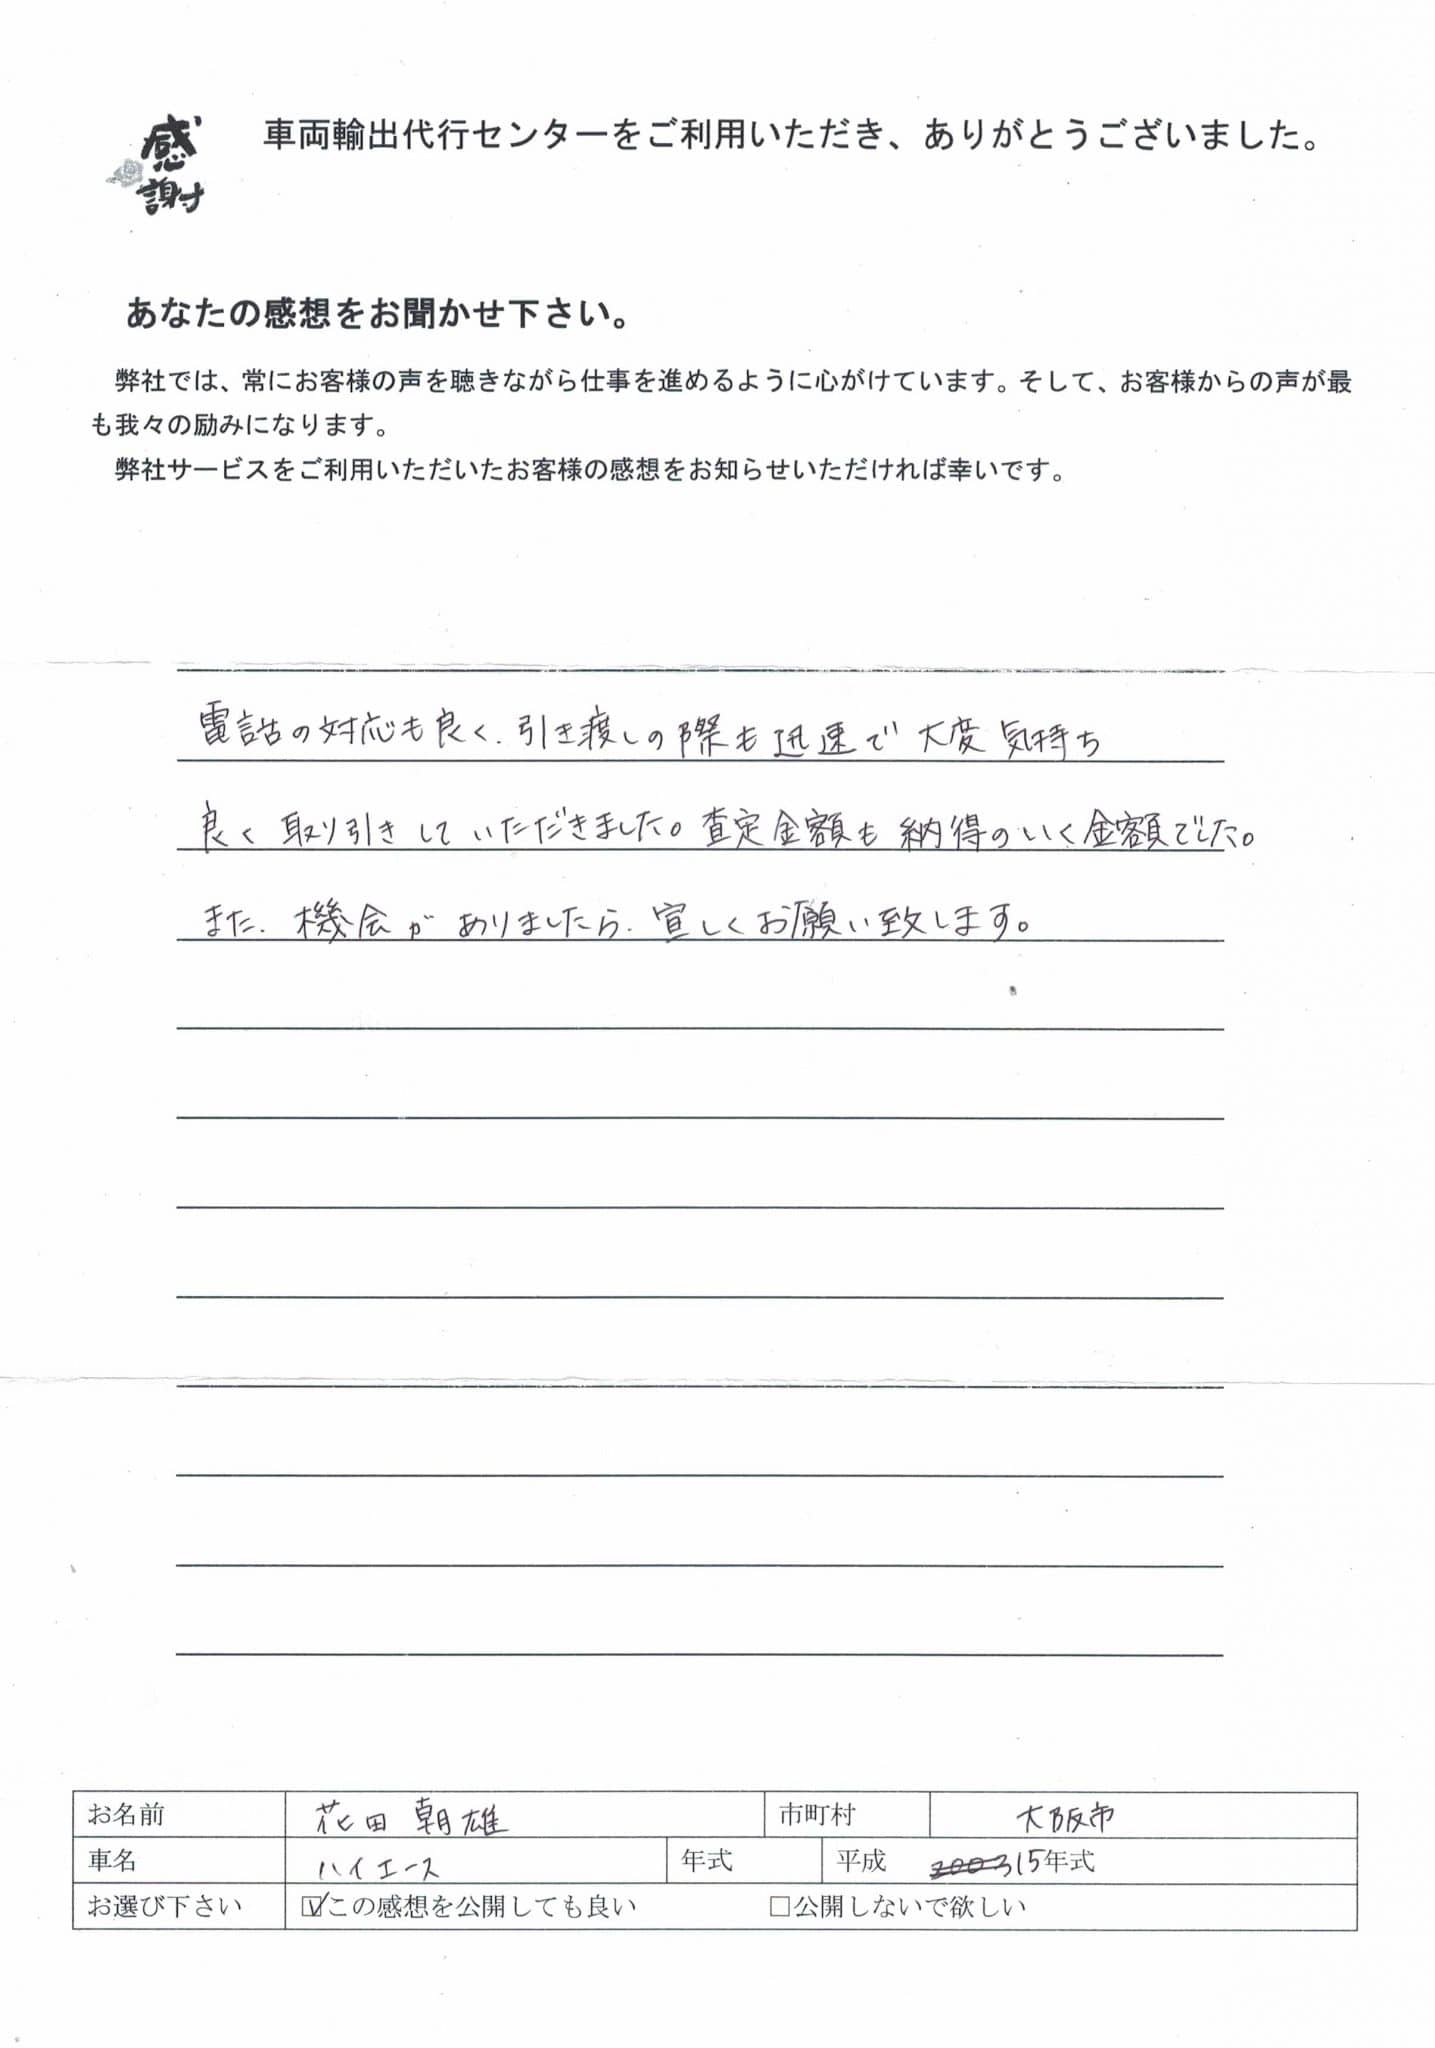 感謝
車両輸出代行センターをご利用いただき、ありがとうございました。
あなたの感想をお聞かせ下さい。
弊社では、常にお客様の声を聴きながら仕事を進めるように心がけています。そして、お客様からの声が最
も我々の励みになります。
弊社サービスをご利用いただいたお客様の感想をお知らせいただければ幸いです。
電話の対応も良く、引き渡しの際も迅速で大変気持ち
良く取り引きしていただきました。査定金額も納得のいく金額でした。
また、機会がありましたら、宜しくお願い致します。
お名前 花田 朝雄 市町村 大阪市
車名 ハイエース 年式 平成 2003 15年式
お選び下さい ☑この感想を公開しても良い □公開しないで欲しい